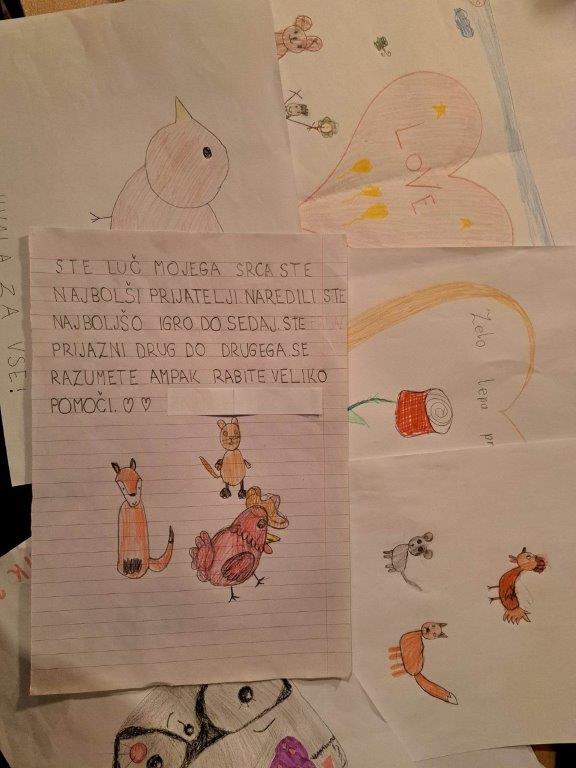 STE LUČ MOJEGA SRCA STE
NAJBOLŠI PRIJATELJI. NAREDILI STE
NAJBOLJŠO IGRO DO SEDAJ. STE
PRIJAZNI DRUG DO DRUGEGA. SE
RAZUMETE AMPAK RABITE VELIKO
POMOČI. ♡ ♡
LOVE
Zelo lepa pr
ZA VSE!